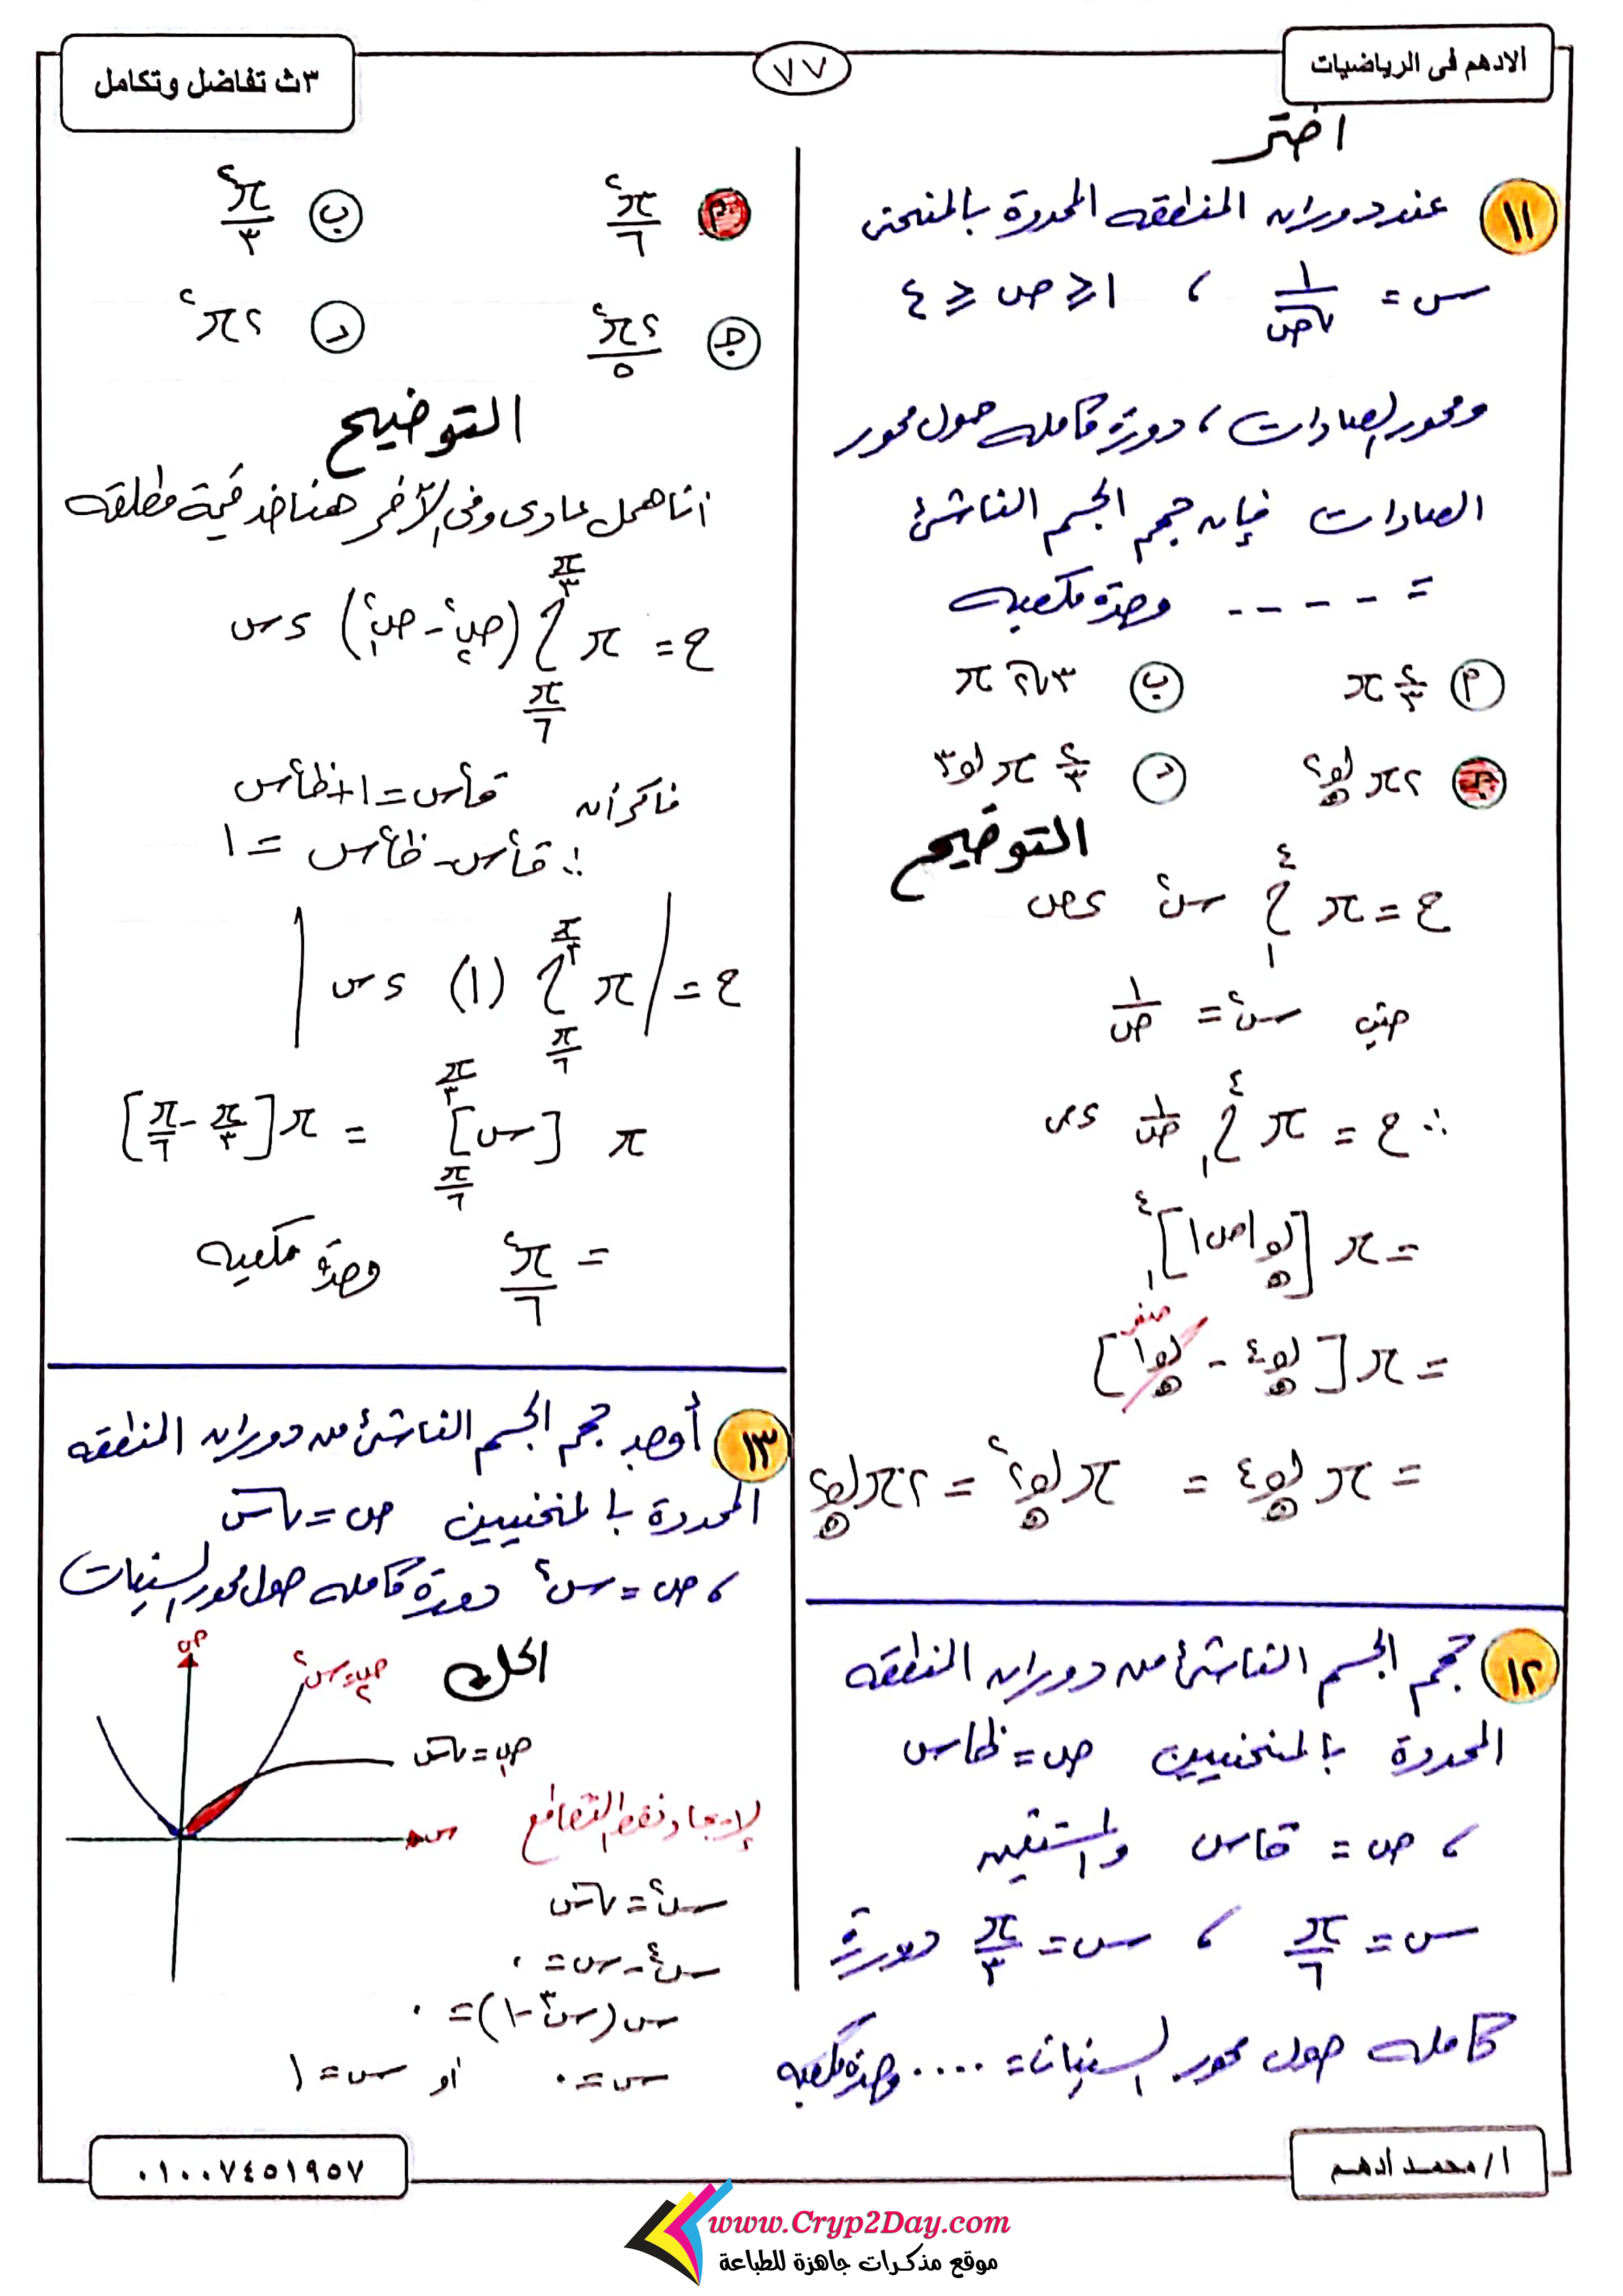 الادهم فى الرياضيات
٧٧
٣ث تفاضل وتكامل
اختر
١١ عند دوران المنطقه المحددة بالمنحنى
س = ١/√ص ، ١ ≤ ص ≤ ٤
ومحور الصادات ، دورة كامله حول محور
الصادات فإن حجم الجسم الناشئ
= - - - - وحدة مكعبه
أ ٤/٣ π
ج ٢π لو٢ هـ
د ٤/٣ π لو٣
التوضيح
ح = π ∫₁⁴ س² ءص
حيث س² = ١/ص
∴ ح = π ∫₁⁴ ١/ص ءص
= π [لو|ص| هـ]₁⁴
= π [لو٤ هـ - لو١ هـ] صفر
= π لو٤ هـ = π لو٢² هـ = ٢π لو٢ هـ
١٢ حجم الجسم الناشئ من دوران المنطقه
المحددة بالمنحنيين ص = ظاس
، ص = قاس والمستقيمين
س = π/٦ ، س = π/٣ دورة
كامله حول محور السينات = .... وحدة مكعبه
أ π²/٦ ب π²/٣
ج ٢π²/٥ د ٢π²
التوضيح
انا هحل عادى وفى الآخر هناخد قيمة مطلقه
ح = π ∫ (ص₁² - ص₂²) ءس π/٣ π/٦
فاكر أن قا²س = ١ + ظا²س
∴ قا²س - ظا²س = ١
ح = | π ∫ (١) ءس | π/٣ π/٦
π [س] π/٣ π/٦ = π [π/٣ - π/٦]
= π²/٦ وحدة مكعبه
١٣ أوجد حجم الجسم الناشئ من دوران المنطقه
المحددة بالمنحنيين ص = √س
، ص = س² دورة كامله حول محور السينات
الحل
ص
ص₂ = س²
ص₁ = √س
س
لإيجاد نقط التقاطع
س² = √س
س⁴ - س = ٠
س(س³ - ١) = ٠
س = ٠ أو س = ١
أ/ محمد أدهم
٠١٠٠٧٤٥١٩٥٧
www.Cryp2Day.com
موقع مذكرات جاهزة للطباعة